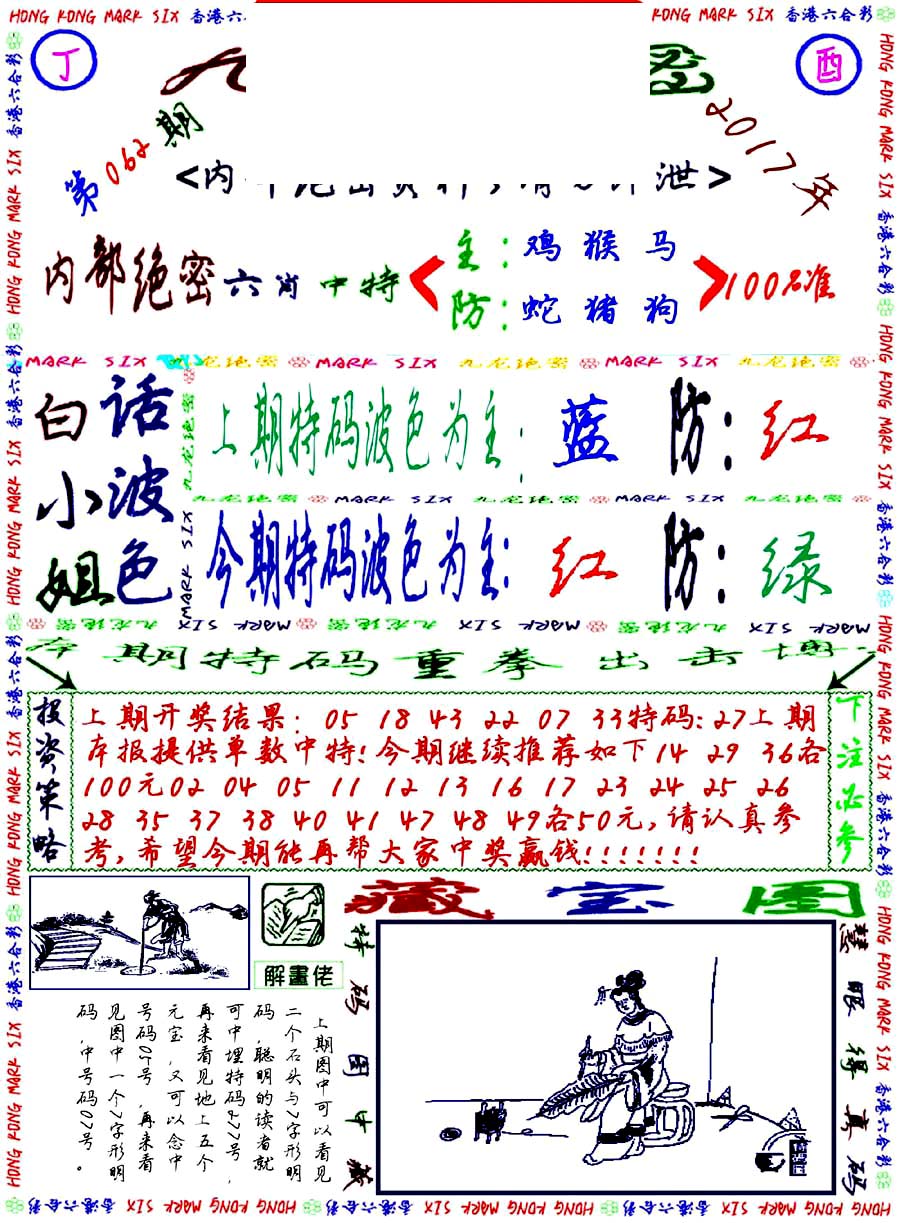 HONG KONG MARK SIX 香港六
KONG MARK SIX 香港六合彩
丁
酉
第062期
2017年
<内
泄>
内部绝密六肖中特
主：鸡猴马
防：蛇猪狗
100%准
MARK SIX 九龙绝密 MARK SIX 九龙绝密 MARK SIX 九龙绝密
白小姐
话波色
上期特码波色为主：蓝 防：红
九龙绝密 MARK SIX 九龙绝密 MARK SIX 九龙绝密
今期特码波色为主：红 防：绿
期特码重拳出击
投资策略
上期开奖结果：05 18 43 22 07 33特码:27上期
本报提供单数中特!今期继续推荐如下14 29 36各
100元02 04 05 11 12 13 16 17 23 24 25 26
28 35 37 38 40 41 47 48 49各50元,请认真参
考,希望今期能再帮大家中奖赢钱!!!!!!!
下注必参
解畫佬
藏宝图
特码图中藏
慧眼得真码
上期图中可以看见
二个石头与7字形明
码,聪明的读者就
可中埋特码27号,
再来看见地上五个
元宝,又可以念中
号码05号,再来看
见图中一个7字形明
码,中号码07号。
HONG KONG MARK SIX 香港六合彩